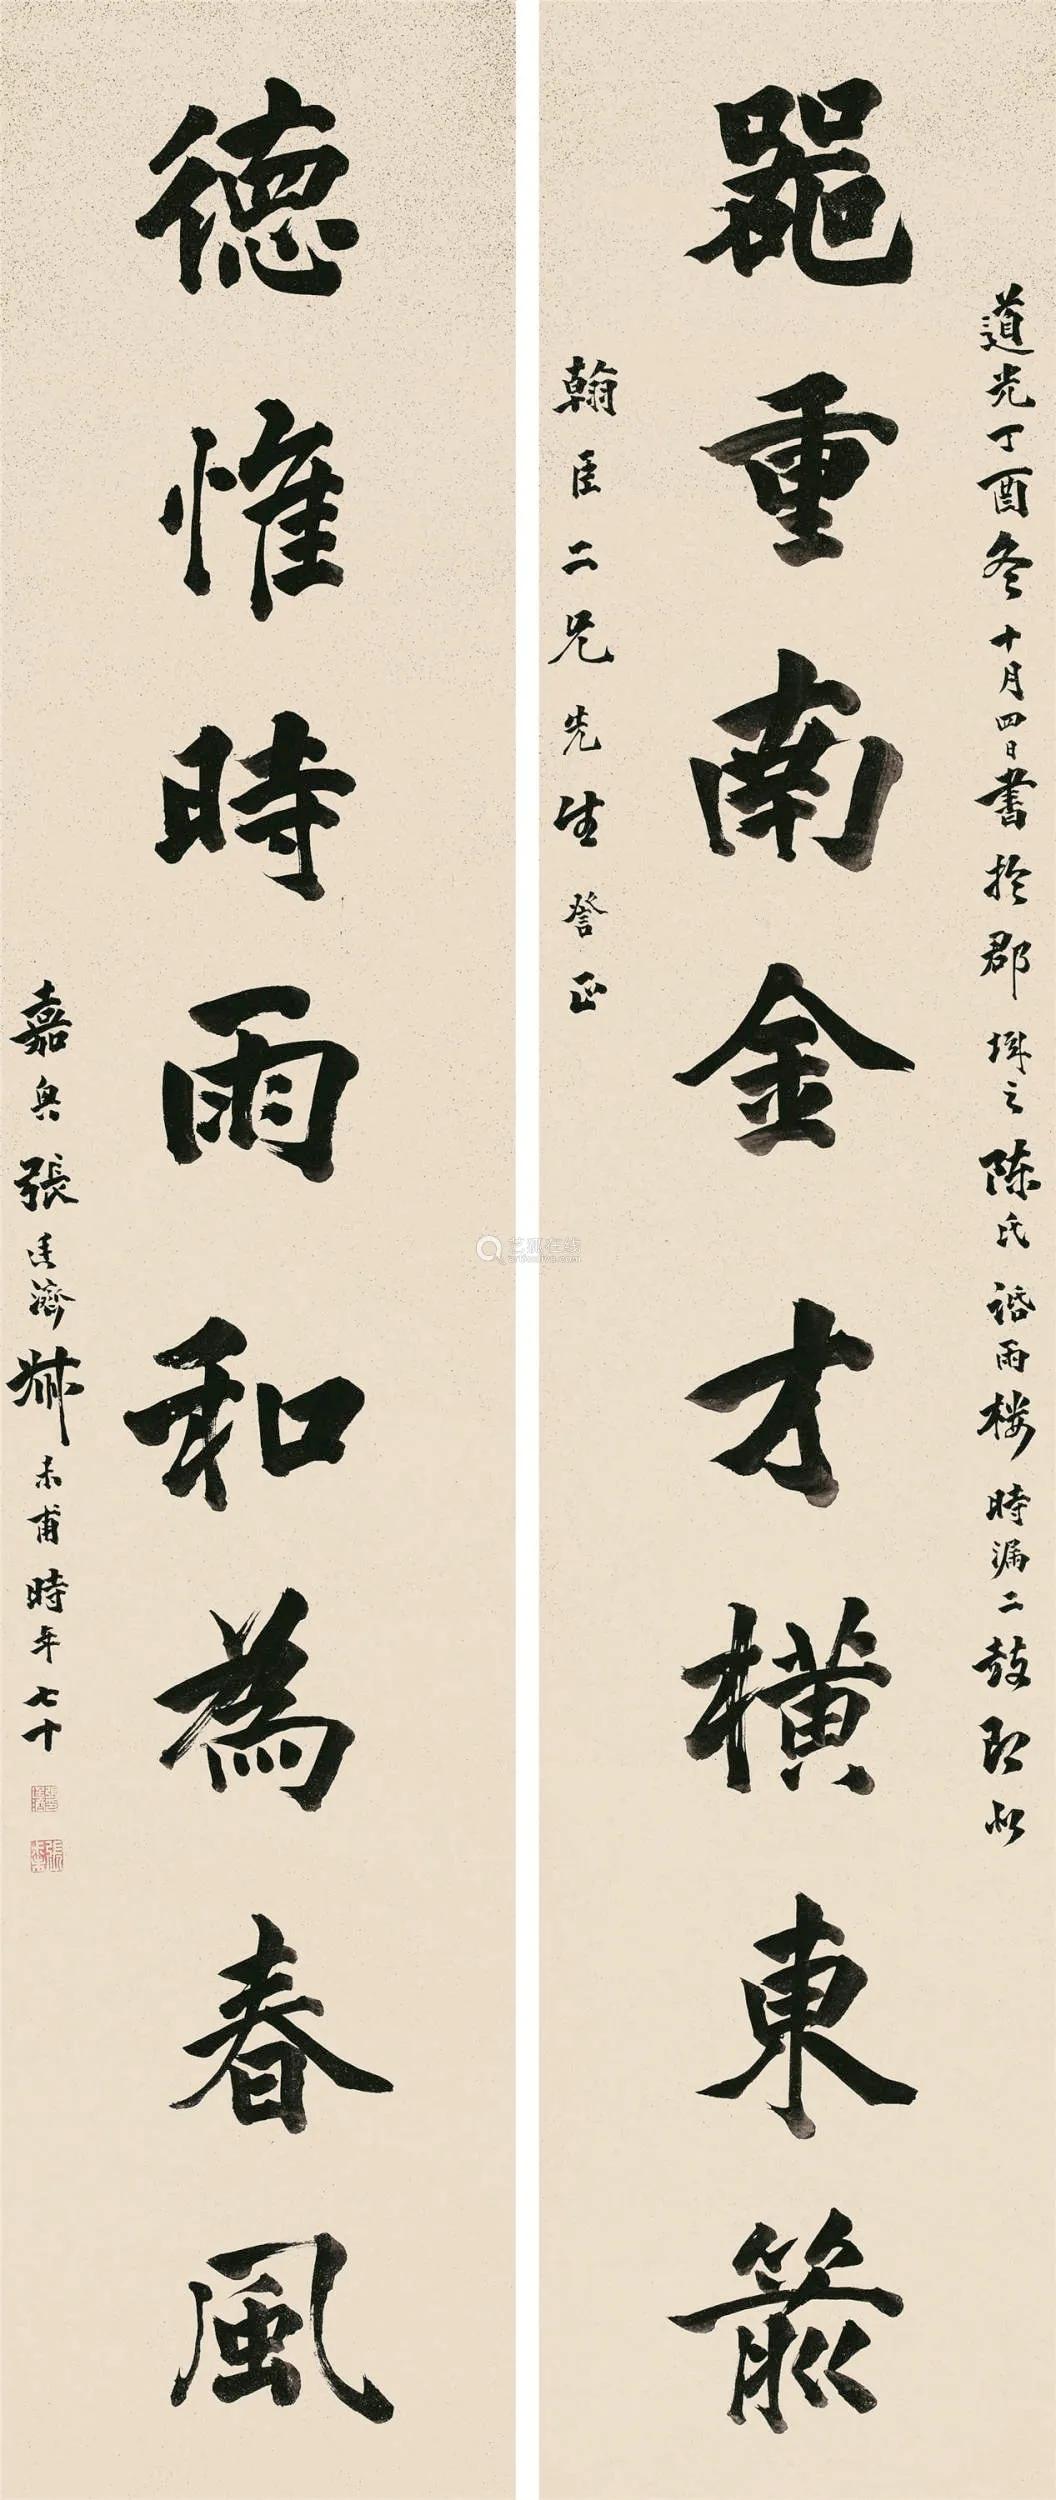 道光丁酉冬十月四日書於郡城之陈氏話雨楼時漏二鼓即似
器重南金才橫東箭
翰臣二兄先生詧正
德惟時雨和為春風
嘉興張廷濟叔未甫時年七十
艺狐在线
artfoxlive.com